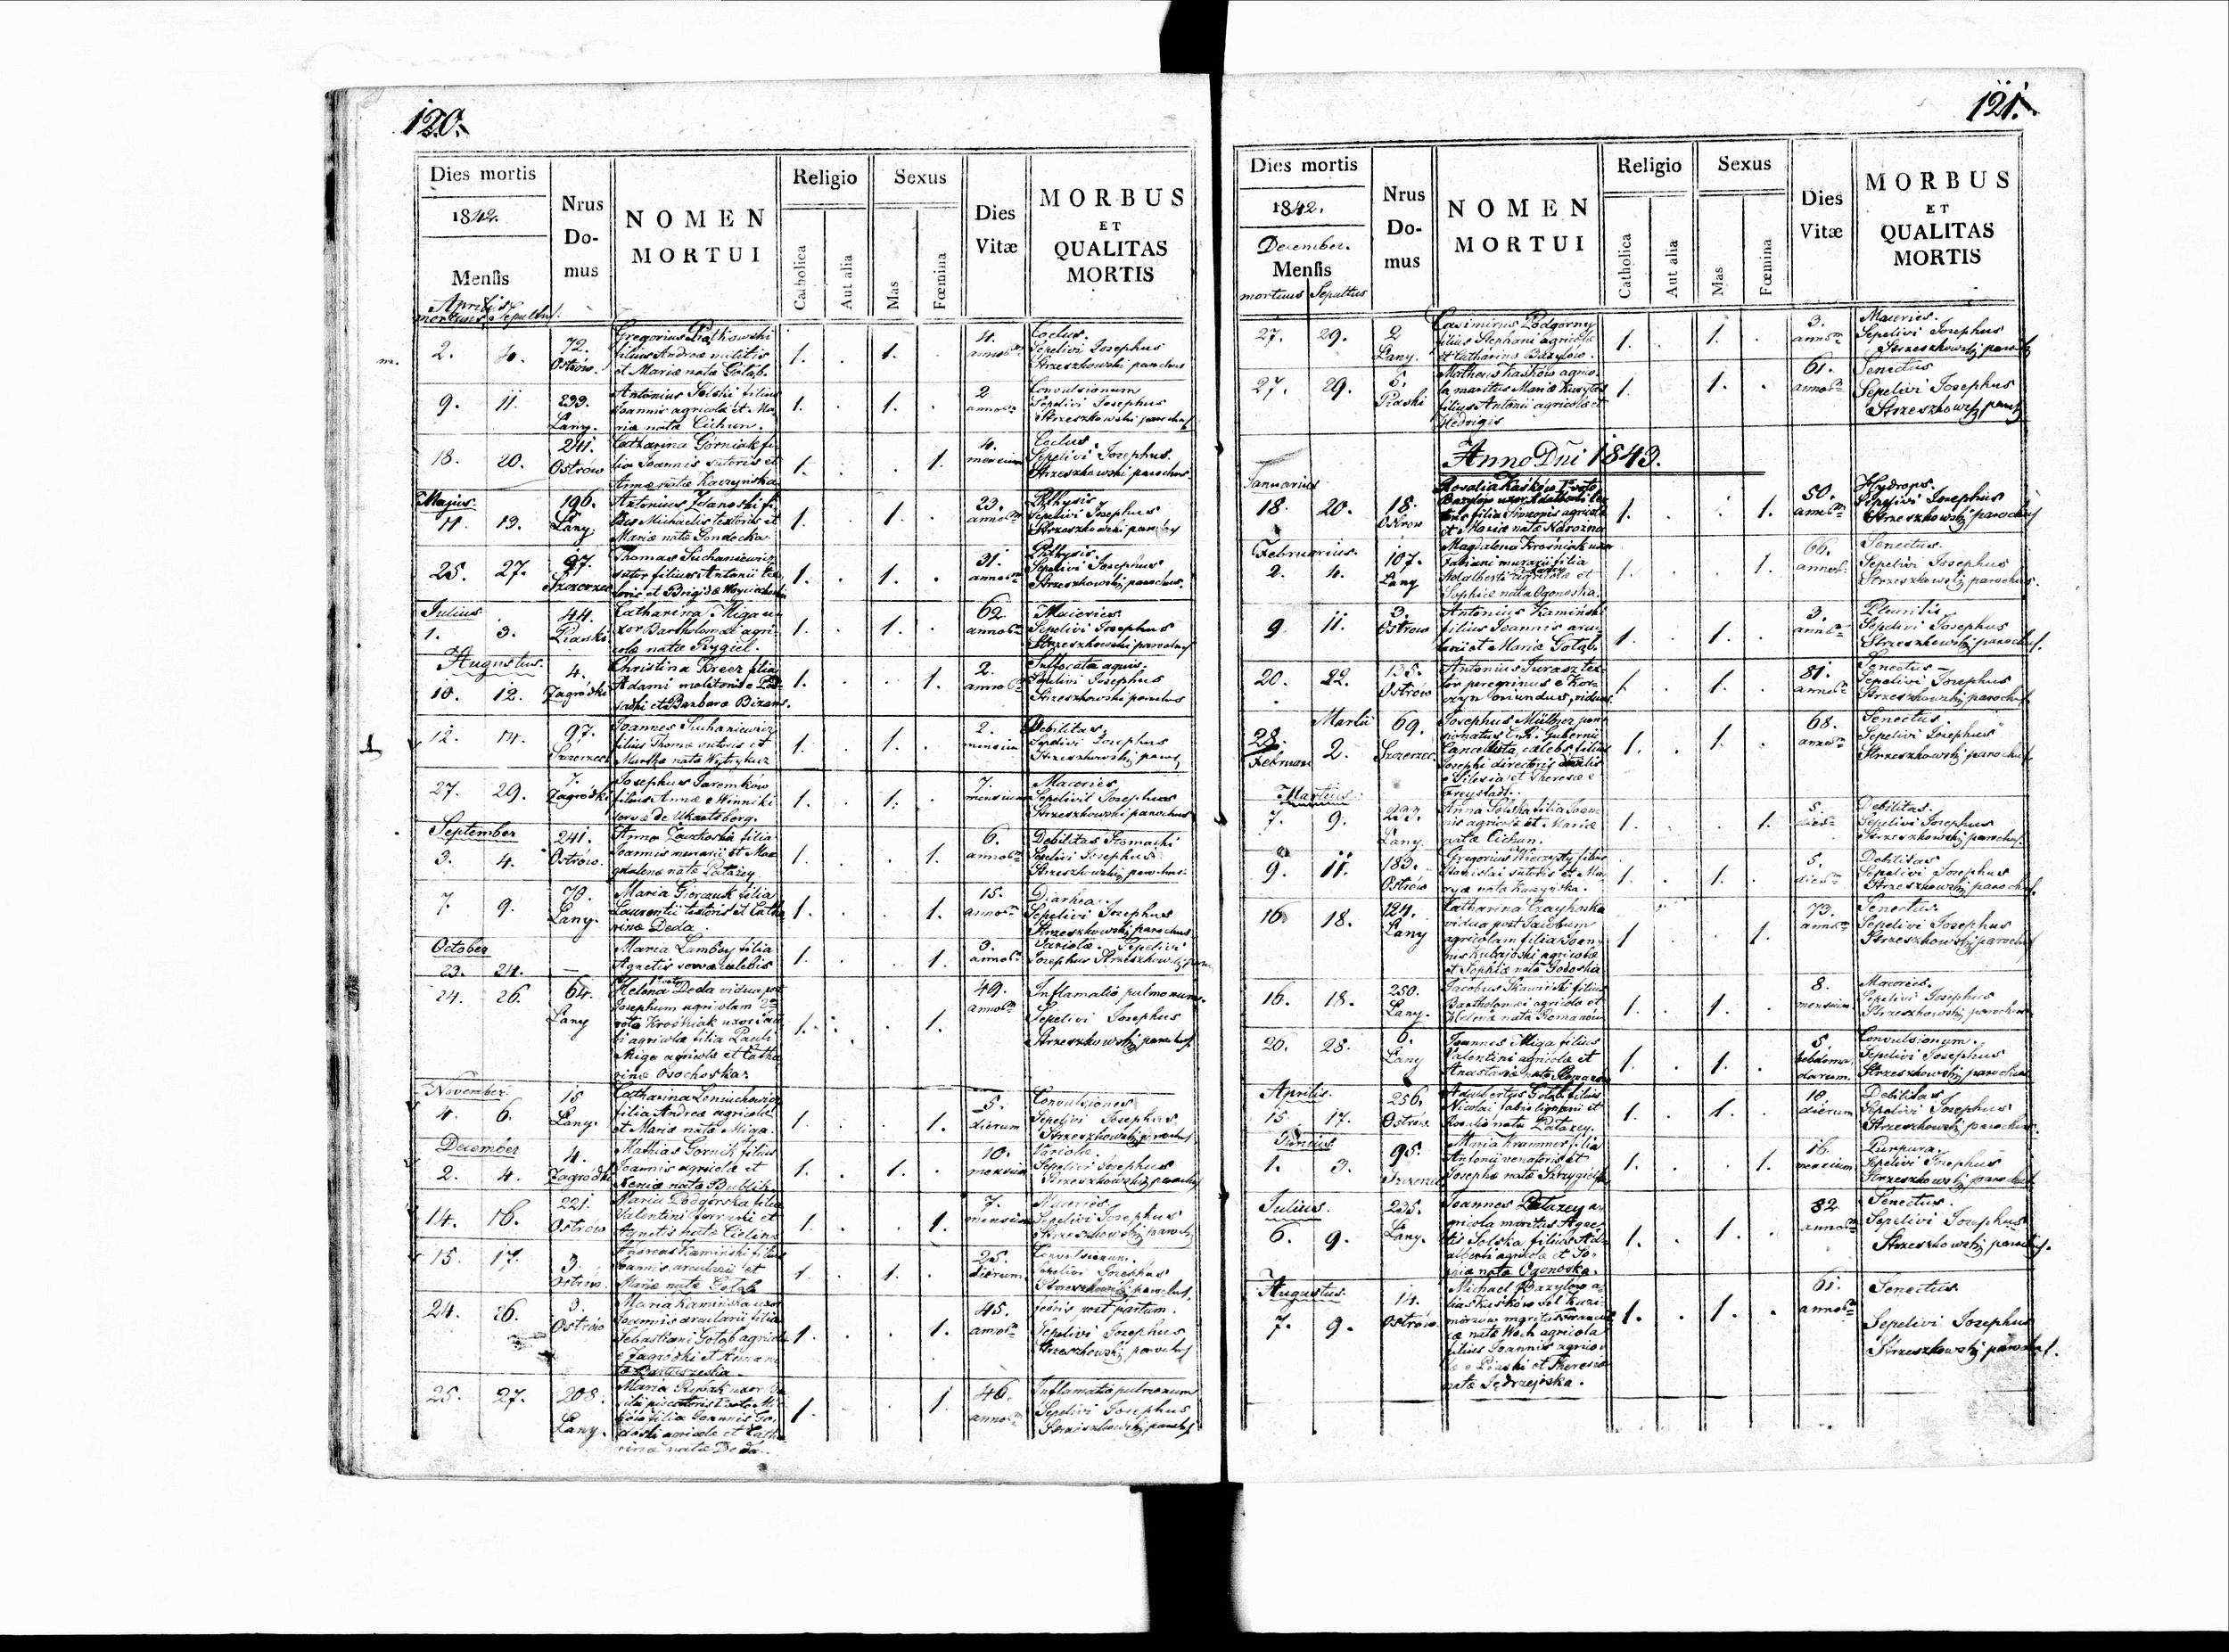 120.
Dies mortis
1842.
Mensis
Aprilis
mortuus Sepultus
Nrus
Domus
NOMEN
MORTUI
Religio
Catholica
Aut alia
Sexus
Mas
Fœmina
Dies
Vitæ
MORBUS
ET
QUALITAS
MORTIS
2. 4. 72. Ostrów. Gregorius
filius Andreæ militis
et Mariæ nata Gołąb. 1. . 1. . 4. annor.
Sepelivi Josephus
Strzeszkowski parochus
9. 11. 233. Łany. Antonius Solski filius
Joannis agricolæ et Ma-
riæ nata Cichun. 1. . 1. . 2. annor. Convulsionum
Sepelivi Josephus
Strzeszkowski parochus
18. 20. 241. Ostrów Catharina Gorniak fi-
lia Joannis sutoris et
Annæ nata Kaczyńska 1. . . 1. 4. mensium
Sepelivi Josephus
Strzeszkowski parochus
Majus.
11. 13. 196. Łany Antonius
lius Michaelis textoris et
Mariæ nata 1. . 1. . 23. annor. Phthysis
Sepelivi Josephus
Strzeszkowski parochus
25. 27. 97. Szczerzec Thomas Suchaniewicz
sutor filius Antonii tex-
toris et Brigidæ 1. . 1. . 31. annorum Phthysis.
Sepelivi Josephus
Strzeszkowskij parochus.
Julius
1. 3. 44. Piaski Catharina Miga u-
xor Bartholomæi agri-
colæ nata Rygiel. 1. . 1. . 62. annor. Macries
Sepelivi Josephus
Strzeszkowski parochus
Augustus.
10. 12. 4. Zagródki Christina Krecz filia
Adami molitoris e
et Barbaræ 1. . . 1. 2. annor. Suffocata aquis.
Sepelivi Josephus
Strzeszkowski parochus
12. 14. 97. Szczerzec Joannes Suchaniewicz
filius Thomæ sutoris et
Marthæ nata 1. . 1. . 2. mensium Debilitas
Sepelivi Josephus
Strzeszkowskij paroch
27. 29. 7. Zagródki Josephus Jaremków
filius Annæ e Winniki
servæ de 1. . 1. . 7. mensium Macries
Sepelivit Josephus
Strzeszkowski parochus
September
3. 4. 241. Ostrów. Anna
Joannis murarii et Mag-
dalenæ nata Patarzey 1. . . 1. 6. annor. Debilitas Stomachi
Sepelivi Josephus
Strzeszkowskij parochus
7. 9. 70. Łany. Maria filia
Laurentii textoris et Catha
rinæ Deda. 1. . . 1. 15. annor. Diarhea.
Sepelivi Josephus
Strzeszkowskij parochus
October
23. 24. — Maria Lambey filia
Agnetis servæ cælebis 1. . . 1. 3. annor. Variolæ. Sepelivi
Josephus Strzeszkowskij
24. 26. 64. Łany Helena Deda vidua post
Josephum agricolam 2do
voto Krośniak uxor
agricolæ filia Pauli
Miga agricolæ et Catha
rinæ Osochoska. 1. . . 1. 49. annor. Inflamatio pulmonum.
Sepelivi Josephus
Strzeszkowskij parochus
November.
4. 6. 15 Łany. Catharina
filia Andreæ agricolæ
et Mariæ nata Miga. 1. . . 1. 5. dierum Convulsiones
Sepelivi Josephus
Strzeszkowskij parochus
December
2. 4. 4. Zagródki Mathias Gornik filius
Joannis agricolæ et
Xeniæ nata Bublik 1. . 1. . 10. mensium Variolæ.
Sepelivi Josephus
Strzeszkowskij parochus
14. 16. 221. Ostrów Maria Podgorska filia
Valentini ferrarii et
Agnetis nata 1. . . 1. 7. mensium Macries
Sepelivi Josephus
Strzeszkowskij parochus
15. 17. 3. Ostrów. Andreas Kamiński filius
Joannis arcularii et
Mariæ nata Gołąb 1. . 1. . 25. dierum Convulsionum.
Sepelivi Josephus
Strzeszkowskij parochus
24. 26. 3. Ostrów Maria Kamińska uxor
Joannis arcularii filia
Sebastiani Gołąb agricolæ
e Zagrodki et 1. . . 1. 45. annor. post partum.
Sepelivi Josephus
Strzeszkowskij parochus
25. 27. 208. Łany. Maria Rybak uxor
piscatoris
filia Joannis Go-
doski agricolæ et Catha-
rinæ nata Deda. 1. . . 1 46. annor. Inflamatio pulmonum
Sepelivi Josephus
Strzeszkowskij parochus
121.
Dies mortis
1842.
December.
Mensis
mortuus Sepultus
Nrus
Domus
NOMEN
MORTUI
Religio
Catholica
Aut alia
Sexus
Mas
Fœmina
Dies
Vitæ
MORBUS
ET
QUALITAS
MORTIS
27. 29. 2 Łany. Casimirus Podgorny
filius Stephani agricolæ
et Catharinæ Bazylów. 1. . 1. . 3. annor. Macries.
Sepelivi Josephus
Strzeszkowskij paroch
27. 29. 6. Piaski Matheus Kaśków agrico-
la maritus Mariæ
filius Antonii agricolæ et
Hedvigis 1. . 1. . 61. annor. Senectus
Sepelivi Josephus
Strzeszkowskij paroch
Anno Dni 1843.
Januarius
18. 20. 18. Ostrow Rosalia Kaśków 1o voto
Bazylow uxor Adalberti
filia Simeonis agricolæ
et Mariæ nata 1. . . 1. 50. annor. Hydrops.
Sepelivi Josephus
Strzeszkowskij parochus
Februarius.
2. 4. 107. Łany Magdalena Krośniak uxor
Fabiani murarii filia
Adalberti agricolæ et
Sophiæ nata Ogonoska. 1. . . 1. 66. annor. Senectus.
Sepelivi Josephus
Strzeszkowskij parochus.
9 11. 3. Ostrow Antonius Kamiński
filius Joannis arcu-
larii et Mariæ Gołąb. 1. . 1. . 3. annor. Pleuritis
Sepelivi Josephus
Strzeszkowskij parochus.
20. 22. 135. Ostrów Antonius Jurasz tex-
tor peregrinus e
oriundus, viduus 1. . 1. . 81. annor. Senectus
Sepelivi Josephus
Strzeszkowskij parochus
28. Februar Martii 2. 69. Szczerzec Josephus
C. R. Gubernii
Cancellista, cælebs filius
Josephi directoris
e Silesia et Theresæ e
Freystadt. 1. . 1. . 68. annor. Senectus.
Sepelivi Josephus
Strzeszkowskij parochus
Martius.
7. 9. 233. Łany. Anna Solska filia Joan-
nis agricolæ et Mariæ
nata Cichun. 1. . . 1. 5. dier. Debilitas.
Sepelivi Josephus
Strzeszkowskij parochus.
9. 11. 183. Ostrów Gregorius filius
Stanislai sutoris et Ma-
ryæ nata Kaczyńska. 1. . 1. . 5. dier. Debilitas
Sepelivi Josephus
Strzeszkowskij parochus.
16 18. 124. Łany Catharina Czaykoska
vidua post Jacobum
agricolam filia Joan-
nis agricolæ
et Sophiæ nata Godoska 1 . . 1. 73. annor. Senectus.
Sepelivi Josephus
Strzeszkowskij parochus
16. 18. 250. Łany. Jacobus Skawiński filius
Bartholomæi agricolæ et
Helenæ nata Romanów 1. . 1. . 8. mensium. Macries.
Sepelivi Josephus
Strzeszkowskij parochus
26. 28. 6. Łany Joannes Miga filius
Valentini agricolæ et
Anastasiæ nata Romanów 1. . 1. . 5. hebdoma-
darum. Convulsionum.
Sepelivi Josephus
Strzeszkowskij parochus
Aprilis.
15 17. 256. Ostrów. Adalbertus Gołąb filius
Nicolai fabri lignarii et
Rosaliæ nata Patarzey. 1. . 1. . 10. dierum Debilitas
Sepelivi Josephus
Strzeszkowskij parochus.
Junius.
1. 3. 95. Maria Krammer filia
Antonii venatoris et
Josephæ nata 1. . . 1. 16. mensium Purpura.
Sepelivi Josephus
Strzeszkowskij parochus
Julius.
6. 9. 235. Łany. Joannes Patarzey a-
gricola maritus Agne-
tis Solska filius Ad-
alberti agricolæ et So-
phiæ nata Ogonoska. 1. . 1. . 82 annor. Senectus.
Sepelivi Josephus
Strzeszkowskij parochus.
Augustus.
7. 9. 14. Ostrów. Michael Bazylow a-
lias Kaśków
maritus
nata Woch agricola
filius Joannis agrico-
læ e Piaski et Theresæ
nata Jędrzejoska. 1. . 1. . 61. annor. Senectus.
Sepelivi Josephus
Strzeszkowskij parochus.